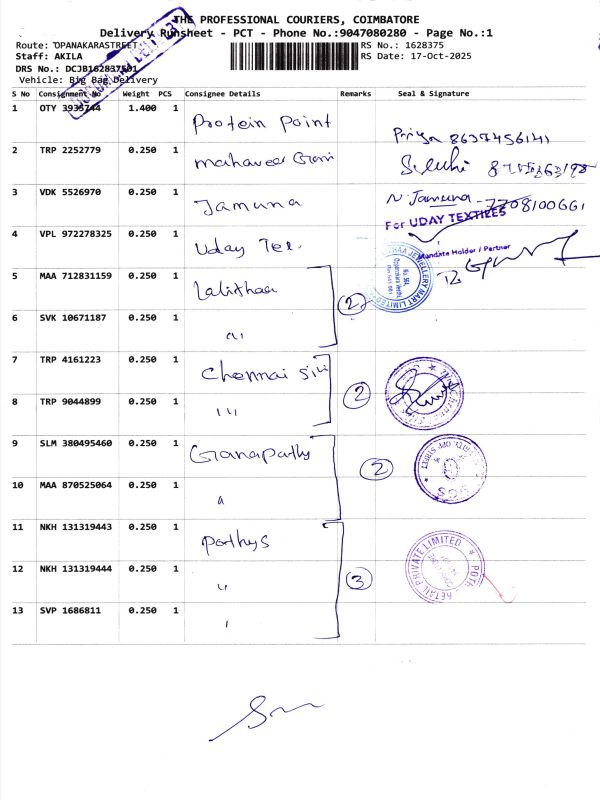 THE PROFESSIONAL COURIERS, COIMBATORE
Delivery Runsheet - PCT - Phone No.:9047080280 - Page No.:1
Route: OPANAKARASTREET
RS No.: 1628375
Staff: AKILA
RS Date: 17-Oct-2025
DRS No.: DCJB1628375
Vehicle: Big Bag Delivery
S No Consignment No Weight PCS Consignee Details Remarks Seal & Signature
1 OTY 1.400 1 Protein Point
Priya 8637456141
2 TRP 2252779 0.250 1 mahaveer
3 VDK 5526970 0.250 1 Jamuna
N. Jamuna - 7708100661
For UDAY TEXTILES
4 VPL 972278325 0.250 1 Uday Tex.
Mandate Holder / Partner
5 MAA 712831159 0.250 1 Lalithaa
JEWELLERY MART LIMITED
2
6 SVK 10671187 0.250 1 "
7 TRP 4161223 0.250 1 Chennai
2
8 TRP 9044899 0.250 1 "
9 SLM 380495460 0.250 1 Ganapathy
2
SCS
10 MAA 870525064 0.250 1 "
11 NKH 131319443 0.250 1 Pothys
RETAIL PRIVATE LIMITED
12 NKH 131319444 0.250 1 "
3
13 SVP 1686811 0.250 1 "